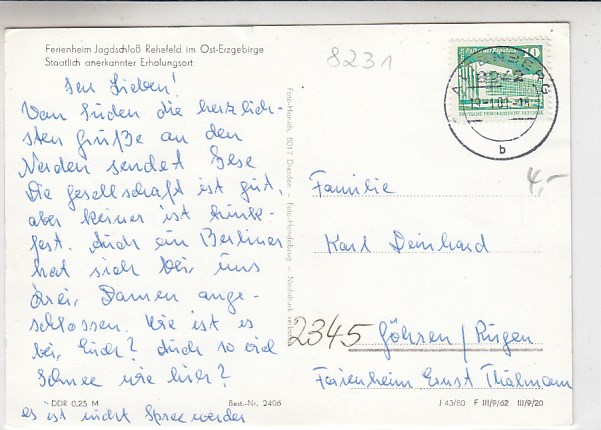 Ferienheim Jagdschloß Rehefeld im Ost-Erzgebirge
Staatlich anerkannter Erholungsort
8231
10
ALTENBERG
8242
DEUTSCHE DEMOKRATISCHE REPUBLIK
b
4,-
Ihr Lieben!
Vom Süden die herzlich-
sten Grüße an den
Norden sendet
Die Gesellschaft ist gut,
aber keiner ist trink-
fest. Auch ein Berliner
hat sich bei uns
drei Damen ange-
schlossen. Wie ist es
bei Euch? Auch so viel
Schnee wie hier?
es ist nicht Spreewerder
Foto-Handzug – Nachdruck verboten
Familie
Karl Deinhard
2345 Göhren / Rügen
Ferienheim Ernst Thälmann
DDR 0,25 M
Best.-Nr. 2406
J 43/80 F III/9/62 III/9/20